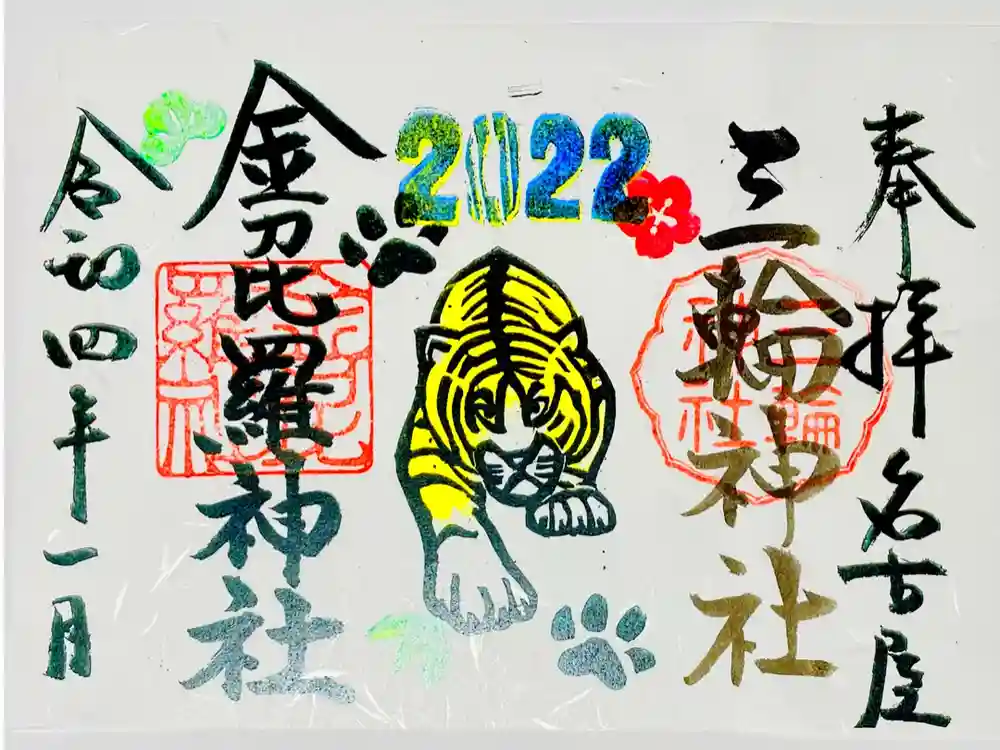 奉拝 名古屋
三輪神社
三輪
神社
2022
金刀比羅神社
令和四年一月